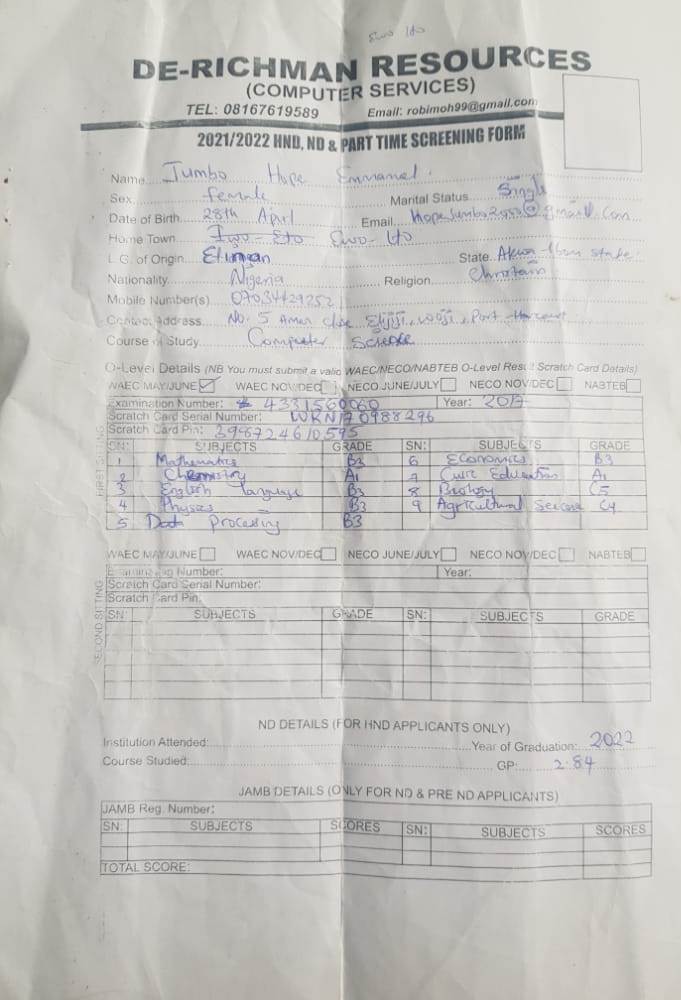 Ewo Ito
DE-RICHMAN RESOURCES
(COMPUTER SERVICES)
TEL: 08167619589 Email: robimoh99@gmail.com
2021/2022 HND, ND & PART TIME SCREENING FORM
Name Jumbo Hope Emmanel
Sex female Marital Status Single
Date of Birth 28th April Email @gmail.com
Home Town Ewo-Ito
L.G. of Origin State Akwa-Ibom state
Nationality Nigeria Religion Christain
Mobile Number(s)
Contact Address No. 5 close Port-Harcourt
Course of Study Computer Science
O-Level Details (NB You must submit a valid WAEC/NECO/NABTEB O-Level Result Scratch Card Details)
WAEC MAY/JUNE ✓ WAEC NOV/DEC NECO JUNE/JULY NECO NOV/DEC NABTEB
FIRST SITTING
Examination Number: 4331560060 Year: 2017
Scratch Card Serial Number: WRN170988296
Scratch Card Pin: 398724610595
SN: SUBJECTS GRADE SN: SUBJECTS GRADE
1 Mathematics B3 6 Economics B3
2 Chemistry A1 7 Civic Education A1
3 English language B3 8 Biology C5
4 Physics B3 9 Agricultural C4
5 Data processing B3
WAEC MAY/JUNE WAEC NOV/DEC NECO JUNE/JULY NECO NOV/DEC NABTEB
SECOND SITTING
Examination Number: Year:
Scratch Card Serial Number:
Scratch Card Pin:
SN: SUBJECTS GRADE SN: SUBJECTS GRADE
ND DETAILS (FOR HND APPLICANTS ONLY)
Institution Attended: Year of Graduation: 2022
Course Studied: GP: 2.84
JAMB DETAILS (ONLY FOR ND & PRE ND APPLICANTS)
JAMB Reg. Number:
SN: SUBJECTS SCORES SN: SUBJECTS SCORES
TOTAL SCORE: